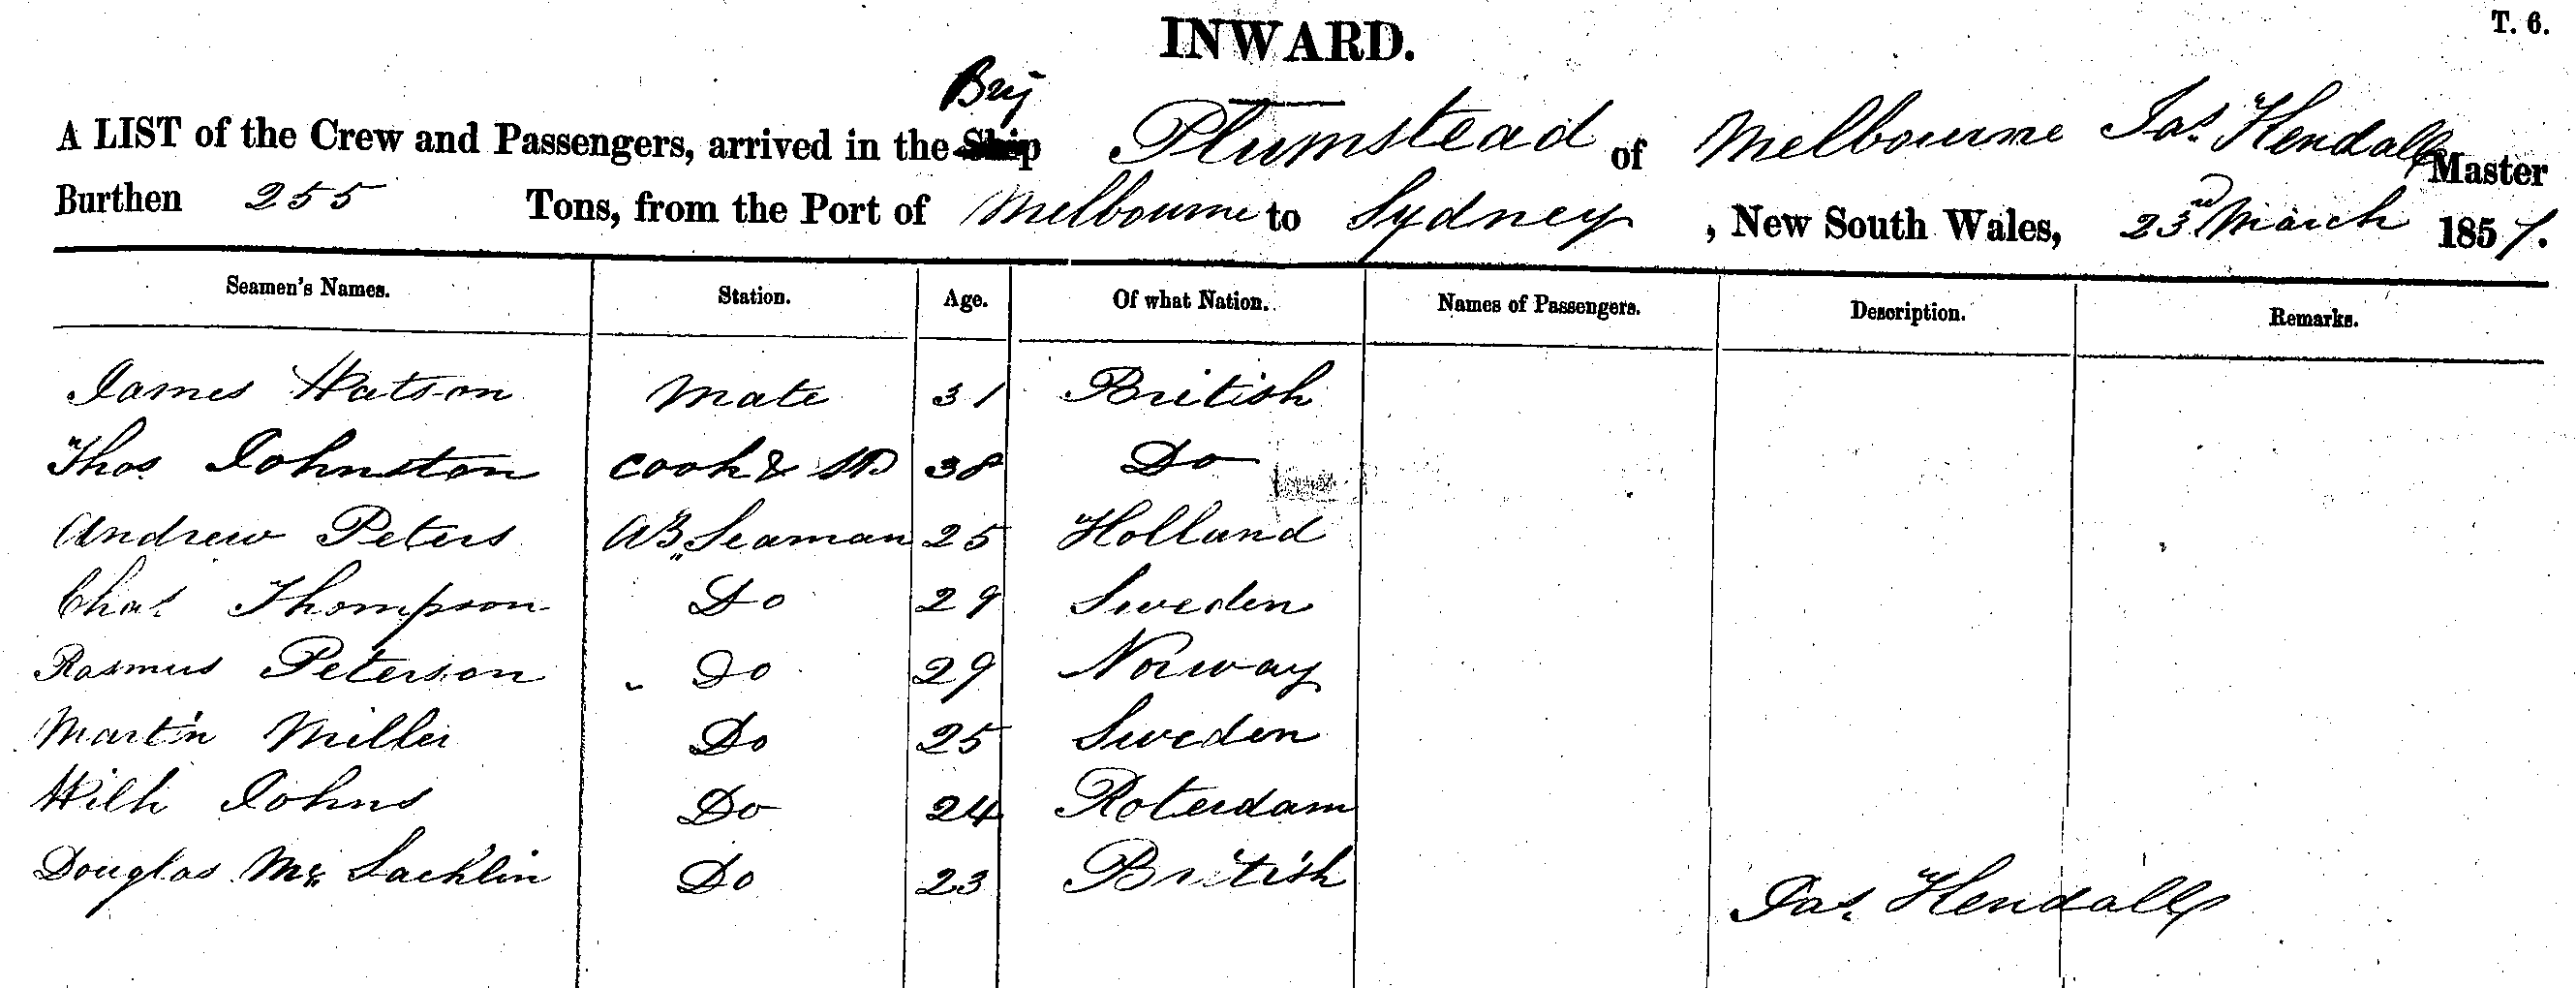 T. 6.
INWARD.
Brig
A LIST of the Crew and Passengers, arrived in the Ship Plumstead of Melbourne Jas. Hendall Master
Burthen 255 Tons, from the Port of Melbourne to Sydney, New South Wales, 23rd March 1857.
Seamen's Names. Station. Age. Of what Nation. Names of Passengers. Description. Remarks.
James Watson Mate 31 British
Thos Johnston Cook & 38 Do
Andrew Peters AB. Seaman 25 Holland
Chas. Thompson Do 29 Sweden
Rasmus Peterson Do 29 Norway
Martin Miller Do 25 Sweden
Johns Do 24 Roterdam
Douglas Mc Lacklin Do 23 British
Jas. Hendall